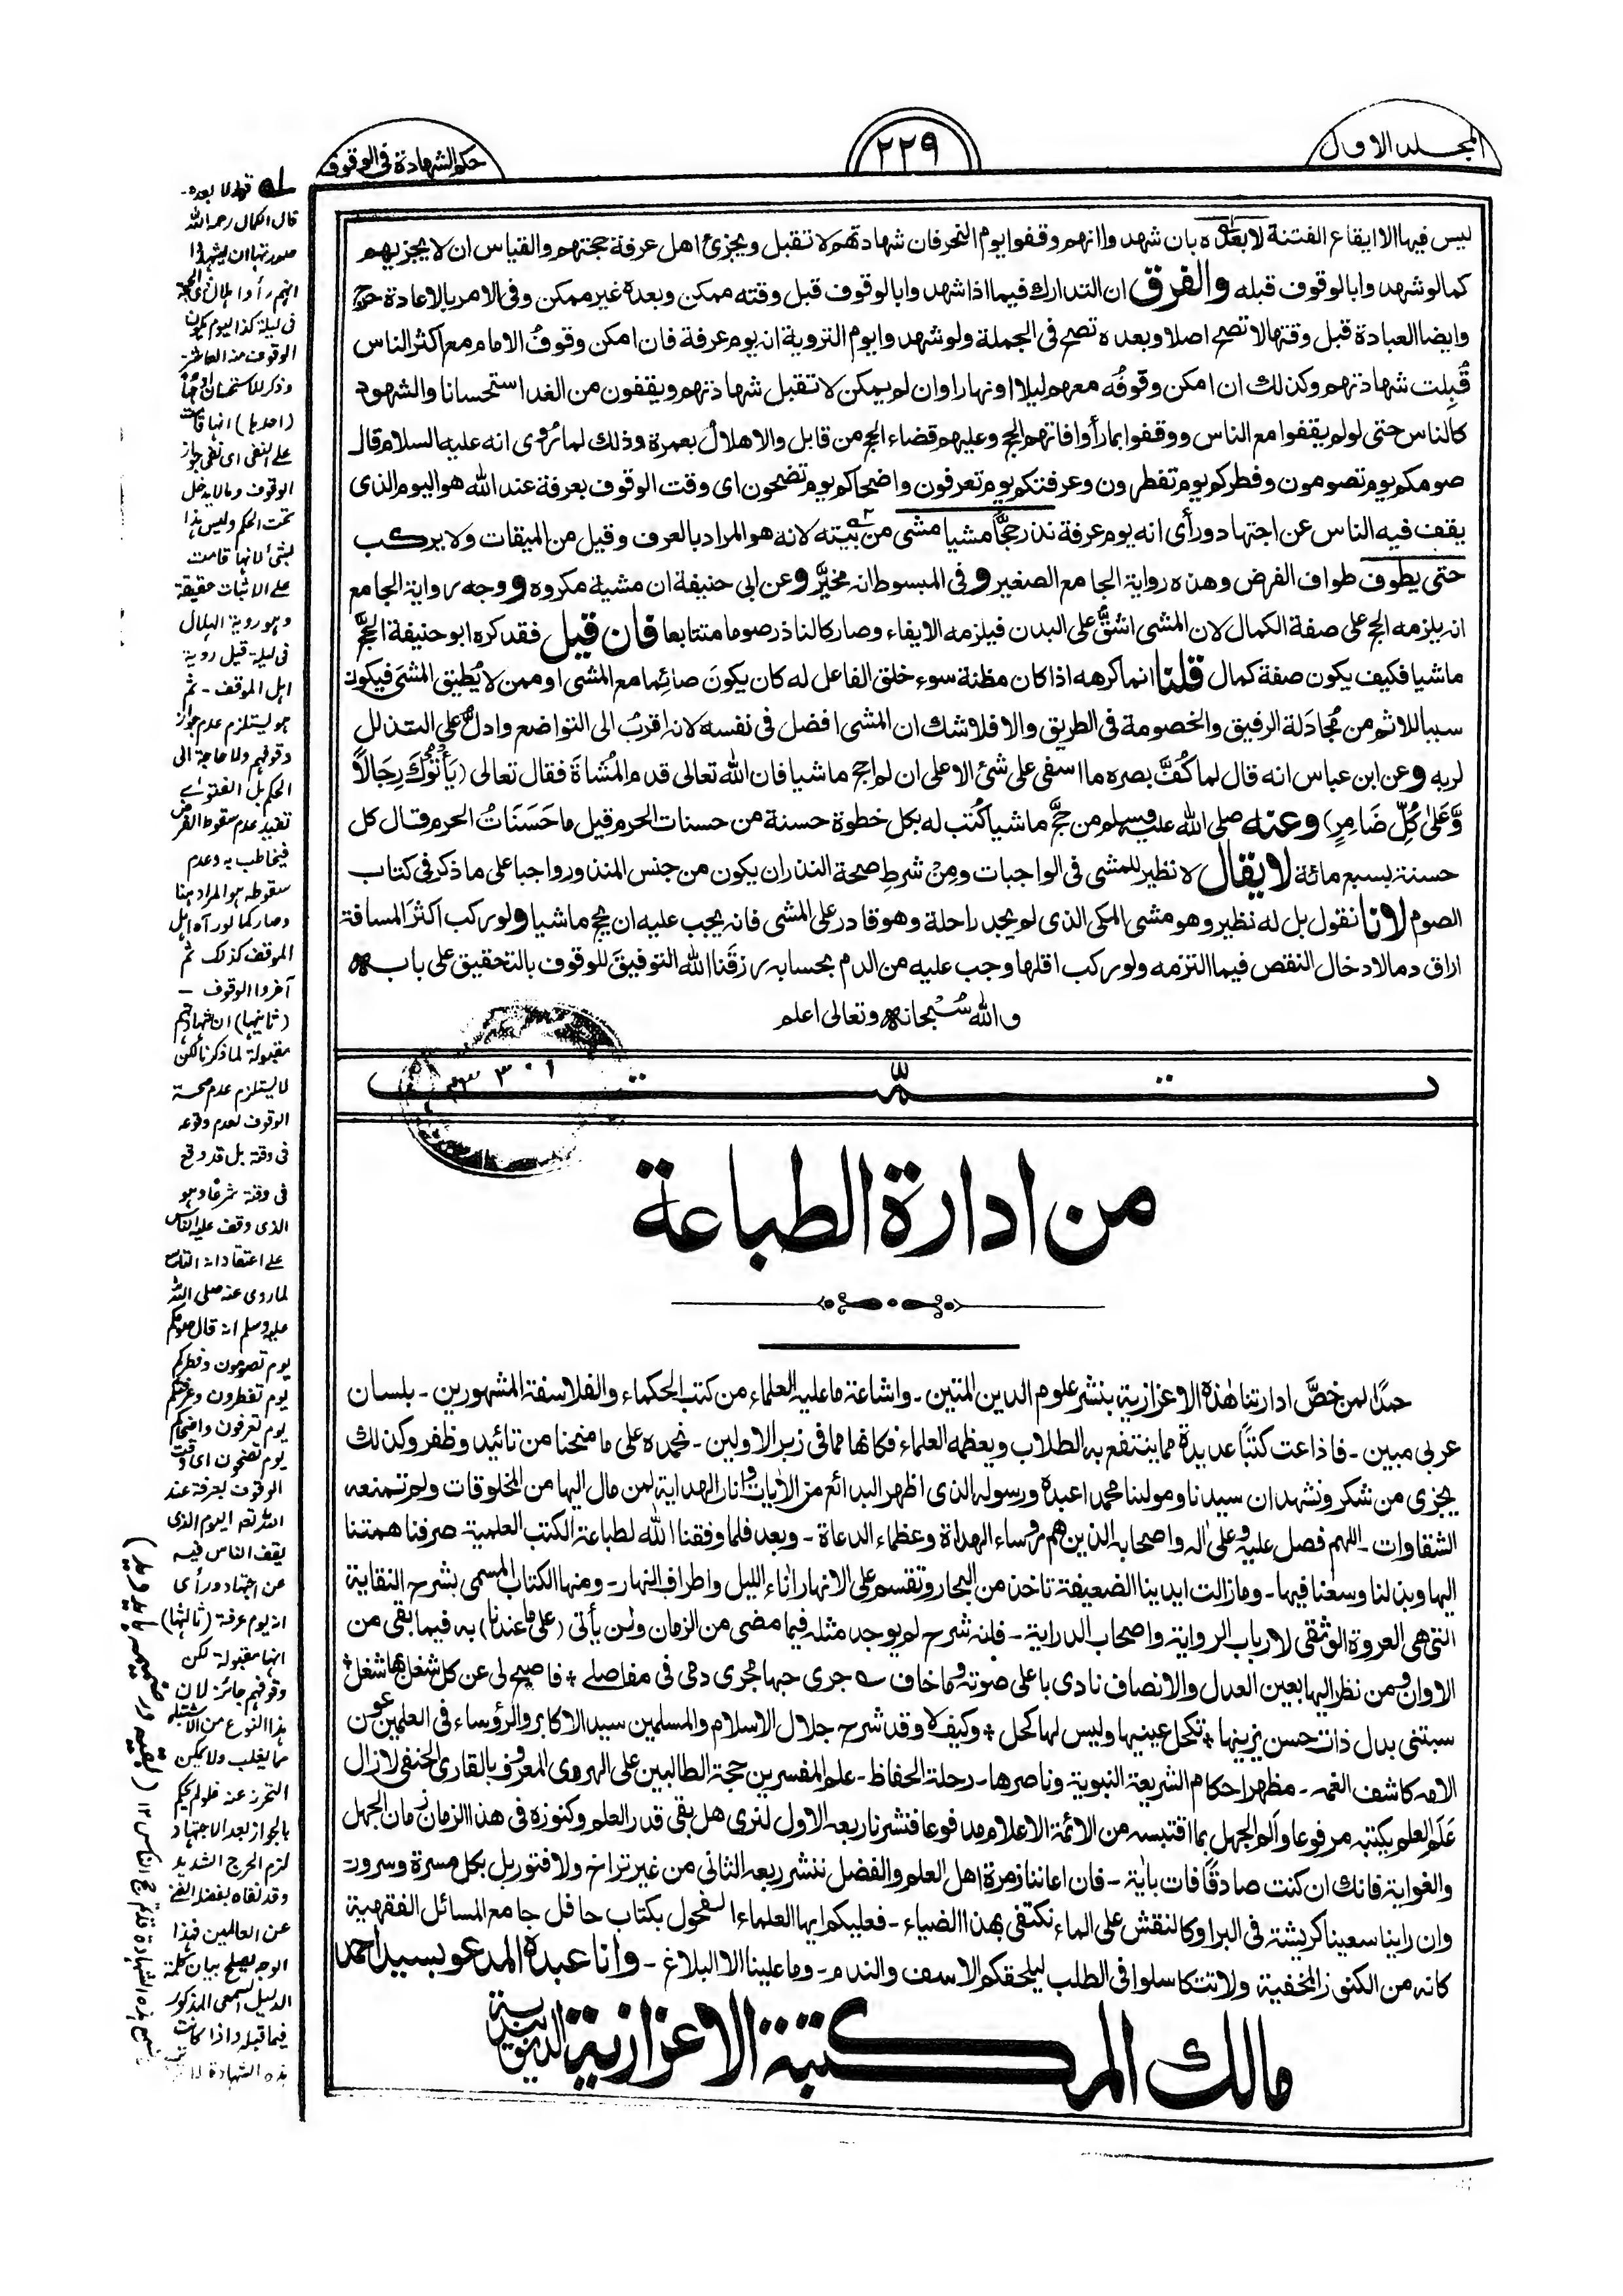 المجلد الاول
٢٢٩
حكم الشهادة فى الوقوف
ليس فيها الا ايقاع الفتنة لا بعده بان شهدوا انهم وقفوا يوم النحر فان شهادتهم لا تقبل ويجزئ اهل عرفة حجتهم والقياس ان لا يجزيهم
كما لو شهدوا بالوقوف قبله والفرق ان التدارك فيما اذا شهدوا بالوقوف قبل وقته ممكن وبعده غير ممكن وفى الامر بالاعادة حرج
وايضا العبادة قبل وقتها لا تصح اصلا وبعده تصح فى الجملة ولو شهدوا يوم التروية انه يوم عرفة فان امكن وقوفُ الامام مع اكثر الناس
قُبِلت شهادتهم وكذلك ان امكن وقوفُه معهم ليلا او نهارا وان لم يمكن لا تقبل شهادتهم ويقفون من الغد استحسانا والشهود
كالناس حتى لو لم يقفوا مع الناس ووقفوا بما رأوا فاتهم الحج وعليهم قضاء الحج من قابل والاهلال بعمرة وذلك لما رُوى انه عليه السلام قال
صومكم يوم تصومون وفطركم يوم تفطرون وعرفتكم يوم تعرفون واضحاكم يوم تضحون اى وقت الوقوف بعرفة عند الله هو اليوم الذى
يقف فيه الناس عن اجتهاد ورأى انه يوم عرفة نذر حجًّا مشيا مشى من بيته لانه هو المراد بالعرف وقيل من الميقات ولا يركب
حتى يطوف طواف الفرض وهذه رواية الجامع الصغير و فى المبسوط انه مخيَّر و عن ابى حنيفة ان مشيه مكروه و وجه رواية الجامع
انه يلزمه الحج على صفة الكمال لان المشى اشقُّ على البدن فيلزمه الايفاء وصار كالناذر صوما متتابعا فان قيل فقد كره ابو حنيفة الحجَّ
ماشيا فكيف يكون صفة كمال قلنا انما كرهه اذا كان مظنة سوء خلق الفاعل له كان يكونَ صائما مع المشى او ممن لا يُطيق المشىَ فيكون
سببا للاثم من مُجادَلة الرفيق والخصومة فى الطريق والا فلا شك ان المشى افضل فى نفسه لانه اقربُ الى التواضع وادلُّ على التذلل
لربه وعن ابن عباس انه قال لما كُفَّ بصره ما اسفى على شئ الا على ان لو احج ماشيا فان الله تعالى قدم المُشاةَ فقال تعالى (يَأْتُوْكَ رِجَالًا
وَّعَلٰى كُلِّ ضَامِرٍ) وعنه صلى الله عليه وسلم من حجَّ ماشيا كُتب له بكل خطوة حسنة من حسنات الحرم قيل ما حَسَنَاتُ الحرم قال كل
حسنة بسبع مائة لا يقال لا نظير للمشى فى الواجبات ومِنْ شرطِ صحة النذر ان يكون من جنس المنذور واجبا على ما ذكر فى كتاب
الصوم لانا نقول بل له نظير وهو مشى المكى الذى لم يجد راحلة وهو قادر على المشى فانه يجب عليه ان يحج ماشيا ولو ركب اكثرَ المسافة
اراق دما لادخال النقص فيما التزمه ولو ركب اقلها وجب عليه من الدم بحسابه رزقَنا الله التوفيقَ للوقوف بالتحقيق على بابه
والله سُبحانه وتعالى اعلم
تمّت
من ادارة الطباعة
حمدًا لمن خصَّ ادارتنا هٰذه الاعزازية بنشر علوم الدين المتين ـ واشاعة ما عليه العلماء من كتب الحكماء والفلاسفة المشهورين ـ بلسان
عربى مبين ـ فاذاعت كتبًا عديدة مما ينتفع به الطلاب ويعظمه العلماء فكانها مما فى زبر الاولين ـ نحمده على ما منحنا من تائيد وظفر وكذلك
يجزى من شكر ونشهد ان سيدنا ومولنا محمدا عبده ورسوله الذى اظهر البدائع من الاٰيات وانار الهداية لمن مال اليها من المخلوقات ولم تمنعه
الشقاوات ـ اللهم فصل عليه وعلى اٰله واصحابه الذين هم رؤساء الهداة وعظماء الدعاة ـ وبعد فلما وفقنا الله لطباعة الكتب العلمية صرفنا همتنا
اليها وبذلنا وسعنا فيها ـ وما زالت ايدينا الضعيفة تاخذ من البحار وتقسم على الانهار اٰناء الليل واطراف النهار ـ ومنها الكتاب المسمى بشرح النقاية
التى هى العروة الوثقى لارباب الرواية واصحاب الدراية ـ فلنه شرح لم يوجد مثله فيما مضى من الزمان ولن يأتى (على ما عندنا) به فيما بقى من
الاوان ومن نظر اليها بعين العدل والانصاف نادى باعلى صوته وما خاف ؎ جرى حبها مجرى دمى فى مفاصلى + فاصبح لى عن كل شغل بها شغل +
سبتنى بدل ذات حسن يزينها + تكحل عينيها وليس لها كحل + وكيف لا وقد شرح جلال الاسلام والمسلمين سيد الاكابر والرؤساء فى العلمين عون
الامه كاشف الغمه ـ مظهر احكام الشريعة النبوية وناصرها ـ رحلة الحفاظ ـ علم المفسرين حجة الطالبين على الهروى المعروف بالقارى الحنفى لازال
عَلَم العلم بكتبه مرفوعا وألم الجهل بما اقتبسه من الائمة الاعلام مدفوعا فنشرنا ربعه الاول لنرى هل بقى قدر العلم وكنوزه فى هذا الزمان زمان الجهل
والغواية فانك ان كنت صادقًا فات باٰية ـ فان اعاننا زمرة اهل العلم والفضل ننشر ربعه الثانى من غير تراخ ولا فتور بل بكل مسرة وسرور
وان راينا سعينا كريشة فى البر او كالنقش على الماء نكتفى بهذا الضياء ـ فعليكم ايها العلماء الفحول بكتاب حافل جامع المسائل الفقهية
كانه من الكنوز المخفية ولا تتكاسلوا فى الطلب ليلحقكم الاسف والندم ـ وما علينا الا البلاغ ـ وانا عبده المدعو بسيد احمد
مالك المكتبة الاعزازية الديوبندية
قوله لا بعده ـ
قال الكمال رحمه الله
صورتها ان يشهدوا
انهم رأوا هلال ذى الحجة
فى ليلة كذا اليوم يكون
الوقوف منه العاشر ـ
وذكر للاستحسان اوجها
(احدها) انها قامت
على النفى اى نفى جواز
الوقوف ومالا يدخل
تحت الحكم وليس هذا
بشئ لانها قامت
على الاثبات حقيقة
وهو روية الهلال
فى ليلة قبل روية
اهل الموقف ـ ثم
هو يستلزم عدم جواز
وقوفهم ولا حاجة الى
الحكم بل الفتوى
تفيد عدم سقوط الفرض
فيخاطب به وعدم
سقوطه هو المراد هنا
وصار كما لو رآه اهل
الموقف كذلك ثم
آخروا الوقوف ـ
(ثانيها) ان شهادتهم
مقبولة لما ذكرنا لكن
لا يستلزم عدم صحة
الوقوف لعدم وقوعه
فى وقته بل قد وقع
فى وقته شرعًا وهو
الذى وقف عليه الناس
على اعتقاد انه التاسع
لما روى عنه صلى الله
عليه وسلم انه قال صومكم
يوم تصومون وفطركم
يوم تفطرون وعرفتكم
يوم تعرفون واضحاكم
يوم تضحون اى وقت
الوقوف بعرفة عند
الله تعه اليوم الذى
يقف الناس فيه
عن اجتهاد ورأى
انه يوم عرفة (ثالثها)
انها مقبولة لكن
وقوفهم جائز لان
هذا النوع من الاشتباه
مما يغلب ولا يمكن
التحرز عنه فلو لم يحكم
بالجواز بعد الاجتهاد
لزم الحرج الشديد
وقد نفاه بفضله الغنى
عن العالمين فهذا
الوجه يصلح بيان حكمة
الدليل السمعى المذكور
فيما قبله واذا كانت
هذه الشهادة لا